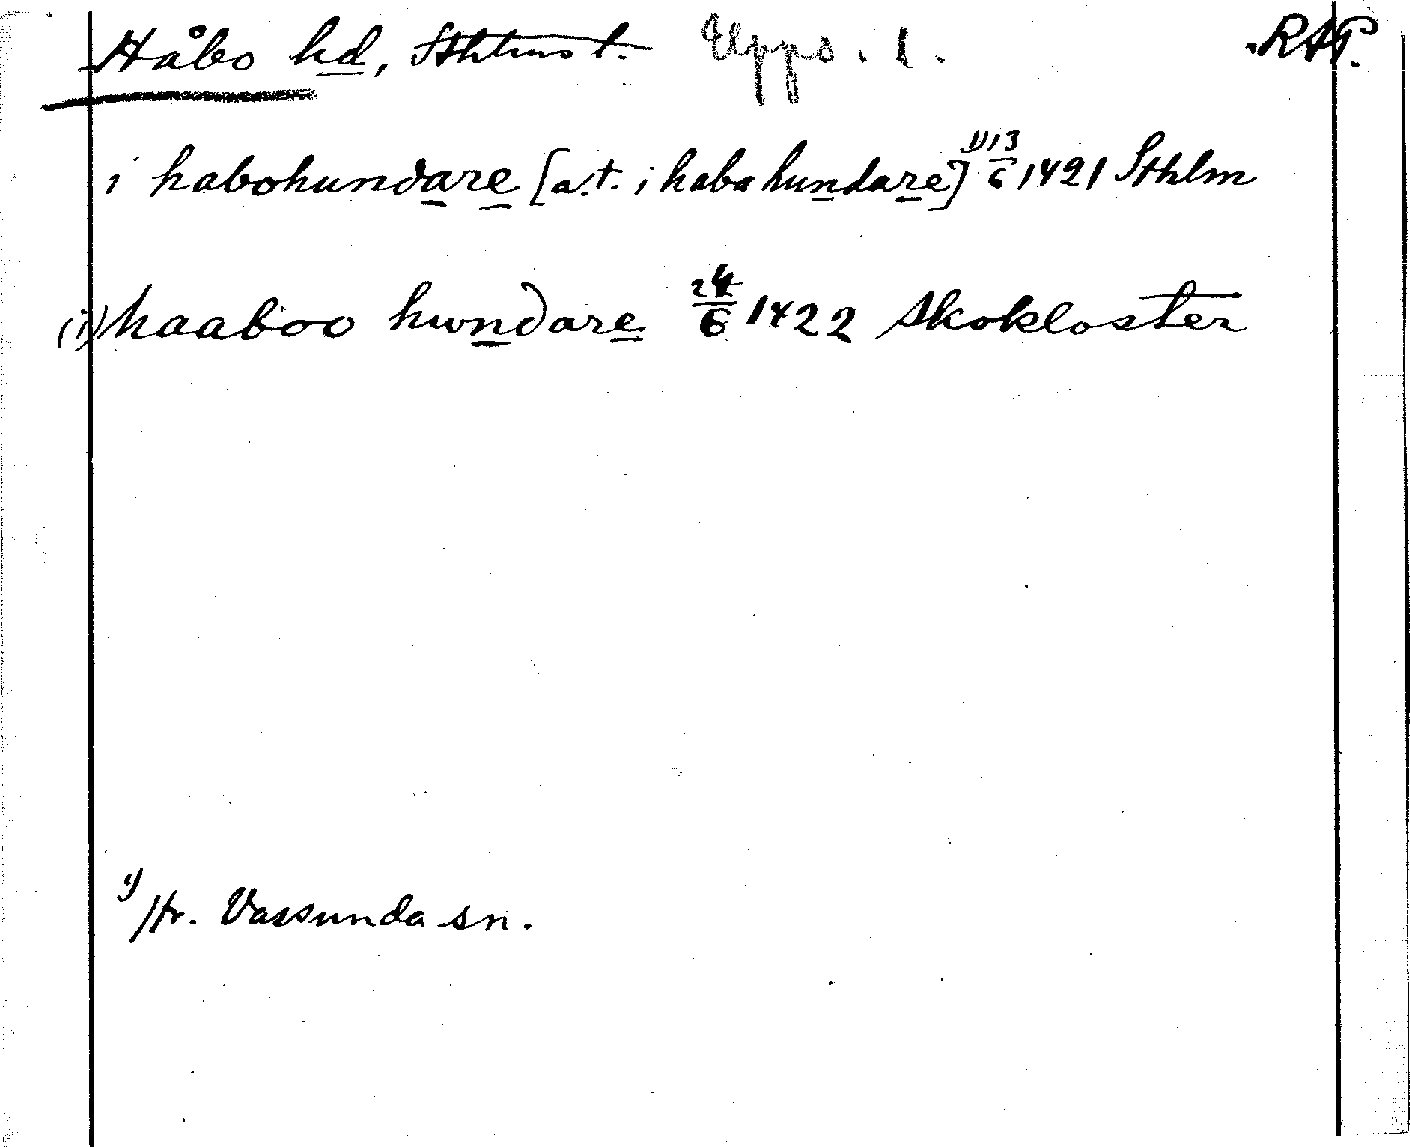 Håbo hd, Sthlms l. Upps. l. RAP.
i habohundare [a.t. i habahundare] 1) 13/6 1421 Sthlm
(i) haaboo hundare 24/6 1422 Skokloster
1) /fr. Vassunda sn.